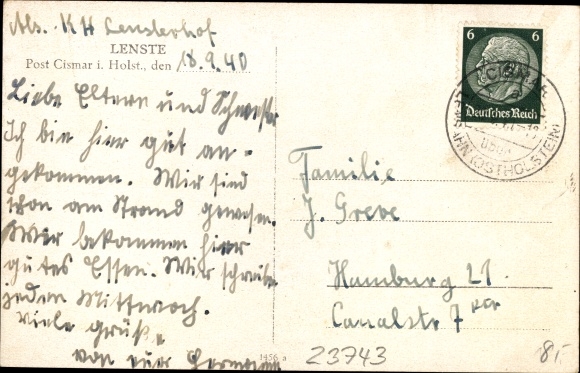 Abs. KH Lensterhof
LENSTE
Post Cismar i. Holst., den 18.9.40
Liebe Eltern und Schwester
Ich bin hier gut an-
gekommen. Wir sind
schon am Strand gewesen.
Wir bekommen hier
gutes Essen. Wir schreiben
jeden Mittwoch.
viele Grüße
von eur Hermann
1456 a
6 6
Deutsches Reich
CISMAR
über
LENSAHN (OSTHOLSTEIN)
Familie
J. Greve
Hamburg 21.
Canalstr 7
23743
8,-